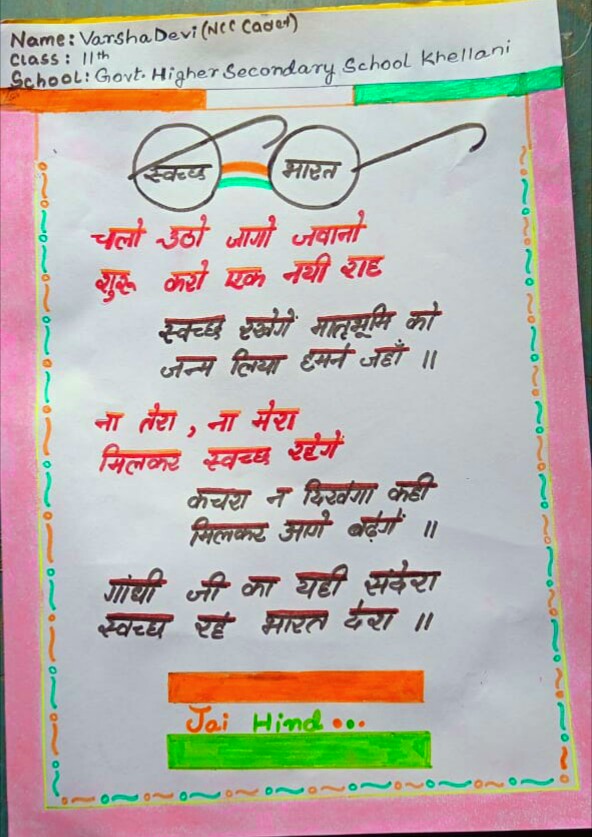 Name: Varsha Devi (NCC Cadet)
Class: 11th
School: Govt. Higher Secondary School Khellani
स्वच्छ भारत
चलो उठो जागो जवानो
शुरू करो एक नयी राह
स्वच्छ रखेगें मातृभूमि को
जन्म लिया हमने जहाँ ॥
ना तेरा, ना मेरा
मिलकर स्वच्छ रहेगें
कचरा न दिखेगा कही
मिलकर आगे बढ़ेगें ॥
गांधी जी का यही संदेश
स्वच्छ रहे भारत देश ॥
Jai Hind...